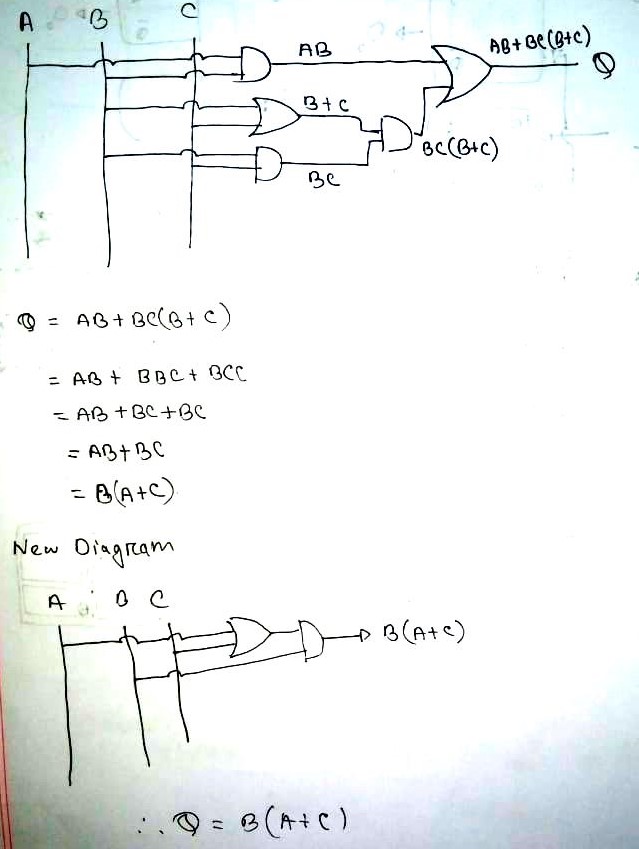 A B C
AB
AB+BC(B+C)
Q
B+C
BC(B+C)
BC
Q = AB+BC(B+C)
= AB + BBC + BCC
= AB +BC+BC
= AB+BC
= B(A+C)
New Diagram
A B C
B(A+C)
∴ Q = B(A+C)